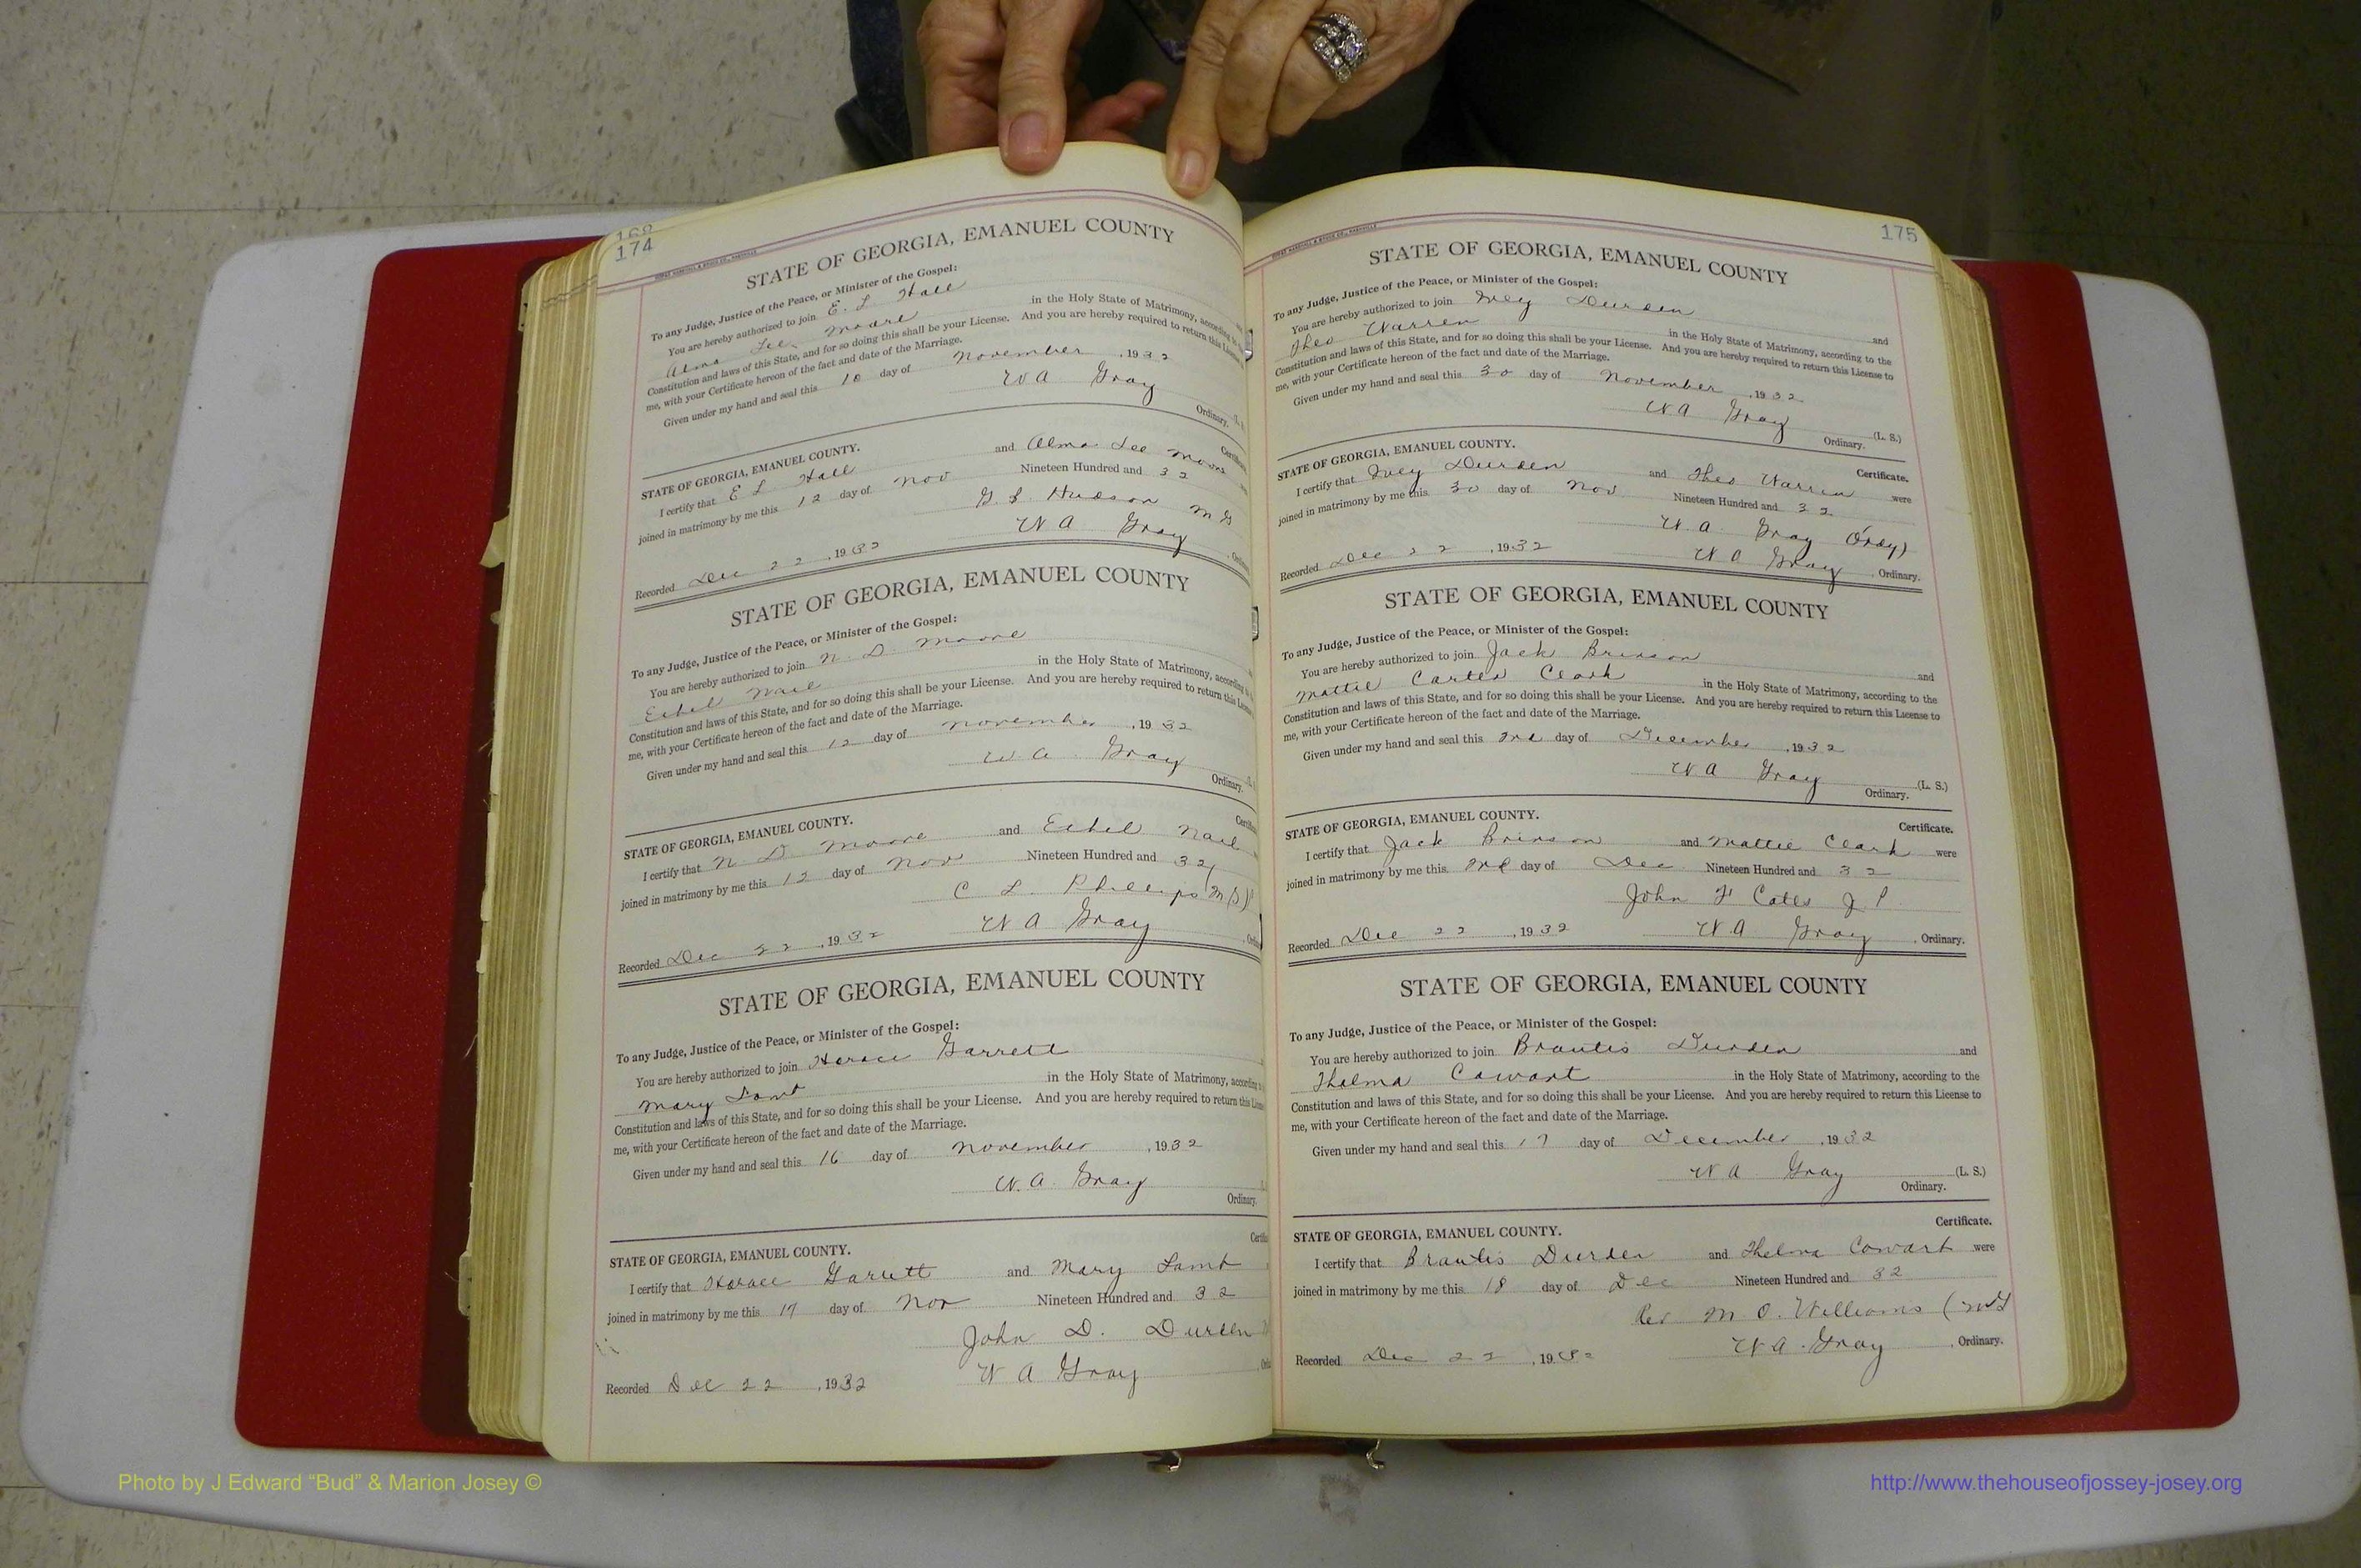 168
174
STATE OF GEORGIA, EMANUEL COUNTY
To any Judge, Justice of the Peace, or Minister of the Gospel:
You are hereby authorized to join E. L. Hall
Alma Lee Moore in the Holy State of Matrimony, according
Constitution and laws of this State, and for so doing this shall be your License. And you are hereby required to return this License
me, with your Certificate hereon of the fact and date of the Marriage.
Given under my hand and seal this 10 day of November, 1932
W A Gray
Ordinary. (L. S.
STATE OF GEORGIA, EMANUEL COUNTY. Certificate
I certify that E L Hall and Alma Lee Moore
joined in matrimony by me this 12 day of Nov Nineteen Hundred and 32
G. S. Hudson M G
W A Gray
Recorded Dec 22, 1932
STATE OF GEORGIA, EMANUEL COUNTY
To any Judge, Justice of the Peace, or Minister of the Gospel:
You are hereby authorized to join N. D. Moore
Ethel Nail in the Holy State of Matrimony, according
Constitution and laws of this State, and for so doing this shall be your License. And you are hereby required to return this License
me, with your Certificate hereon of the fact and date of the Marriage.
Given under my hand and seal this 12 day of November, 1932
W. A. Gray
Ordinary.
STATE OF GEORGIA, EMANUEL COUNTY.
I certify that N D Moore and Ethel Nail
joined in matrimony by me this 12 day of Nov Nineteen Hundred and 32
C L Phillips M G
W A Gray
Recorded Dec 22, 1932
STATE OF GEORGIA, EMANUEL COUNTY
To any Judge, Justice of the Peace, or Minister of the Gospel:
You are hereby authorized to join Horace Garrett
Mary Lamb in the Holy State of Matrimony, according
Constitution and laws of this State, and for so doing this shall be your License. And you are hereby required to return this
me, with your Certificate hereon of the fact and date of the Marriage.
Given under my hand and seal this 16 day of November, 1932
W. A. Gray
Ordinary.
STATE OF GEORGIA, EMANUEL COUNTY.
I certify that Horace Garrett and Mary Lamb
joined in matrimony by me this 17 day of Nov Nineteen Hundred and 32
John D. Durden
W A Gray
Recorded Dec 22, 1932
175
STATE OF GEORGIA, EMANUEL COUNTY
To any Judge, Justice of the Peace, or Minister of the Gospel:
You are hereby authorized to join Ivey Durden and
Theo Warren in the Holy State of Matrimony, according to the
Constitution and laws of this State, and for so doing this shall be your License. And you are hereby required to return this License to
me, with your Certificate hereon of the fact and date of the Marriage.
Given under my hand and seal this 30 day of November, 1932
W A Gray (L. S.)
Ordinary.
STATE OF GEORGIA, EMANUEL COUNTY. Certificate.
I certify that Ivey Durden and Theo Warren were
joined in matrimony by me this 30 day of Nov Nineteen Hundred and 32
W. A. Gray (Ordy)
Recorded Dec 22, 1932 W A Gray, Ordinary.
STATE OF GEORGIA, EMANUEL COUNTY
To any Judge, Justice of the Peace, or Minister of the Gospel:
You are hereby authorized to join Jack Brinson and
Mattie Carter Clark in the Holy State of Matrimony, according to the
Constitution and laws of this State, and for so doing this shall be your License. And you are hereby required to return this License to
me, with your Certificate hereon of the fact and date of the Marriage.
Given under my hand and seal this 2nd day of December, 1932
W. A Gray (L. S.)
Ordinary.
STATE OF GEORGIA, EMANUEL COUNTY. Certificate.
I certify that Jack Brinson and Mattie Clark were
joined in matrimony by me this 2nd day of Dec Nineteen Hundred and 32
John F Cates J. P.
Recorded Dec 22, 1932 W A Gray, Ordinary.
STATE OF GEORGIA, EMANUEL COUNTY
To any Judge, Justice of the Peace, or Minister of the Gospel:
You are hereby authorized to join Brantis Durden and
Thelma Cowart in the Holy State of Matrimony, according to the
Constitution and laws of this State, and for so doing this shall be your License. And you are hereby required to return this License to
me, with your Certificate hereon of the fact and date of the Marriage.
Given under my hand and seal this 17 day of December, 1932
W A Gray (L. S.)
Ordinary.
STATE OF GEORGIA, EMANUEL COUNTY. Certificate.
I certify that Brantis Durden and Thelma Cowart were
joined in matrimony by me this 18 day of Dec Nineteen Hundred and 32
Rev M O. Williams
Recorded Dec 22, 1932 W A. Gray, Ordinary.
Photo by J Edward “Bud” & Marion Josey ©
http://www.thehouseofjossey-josey.org